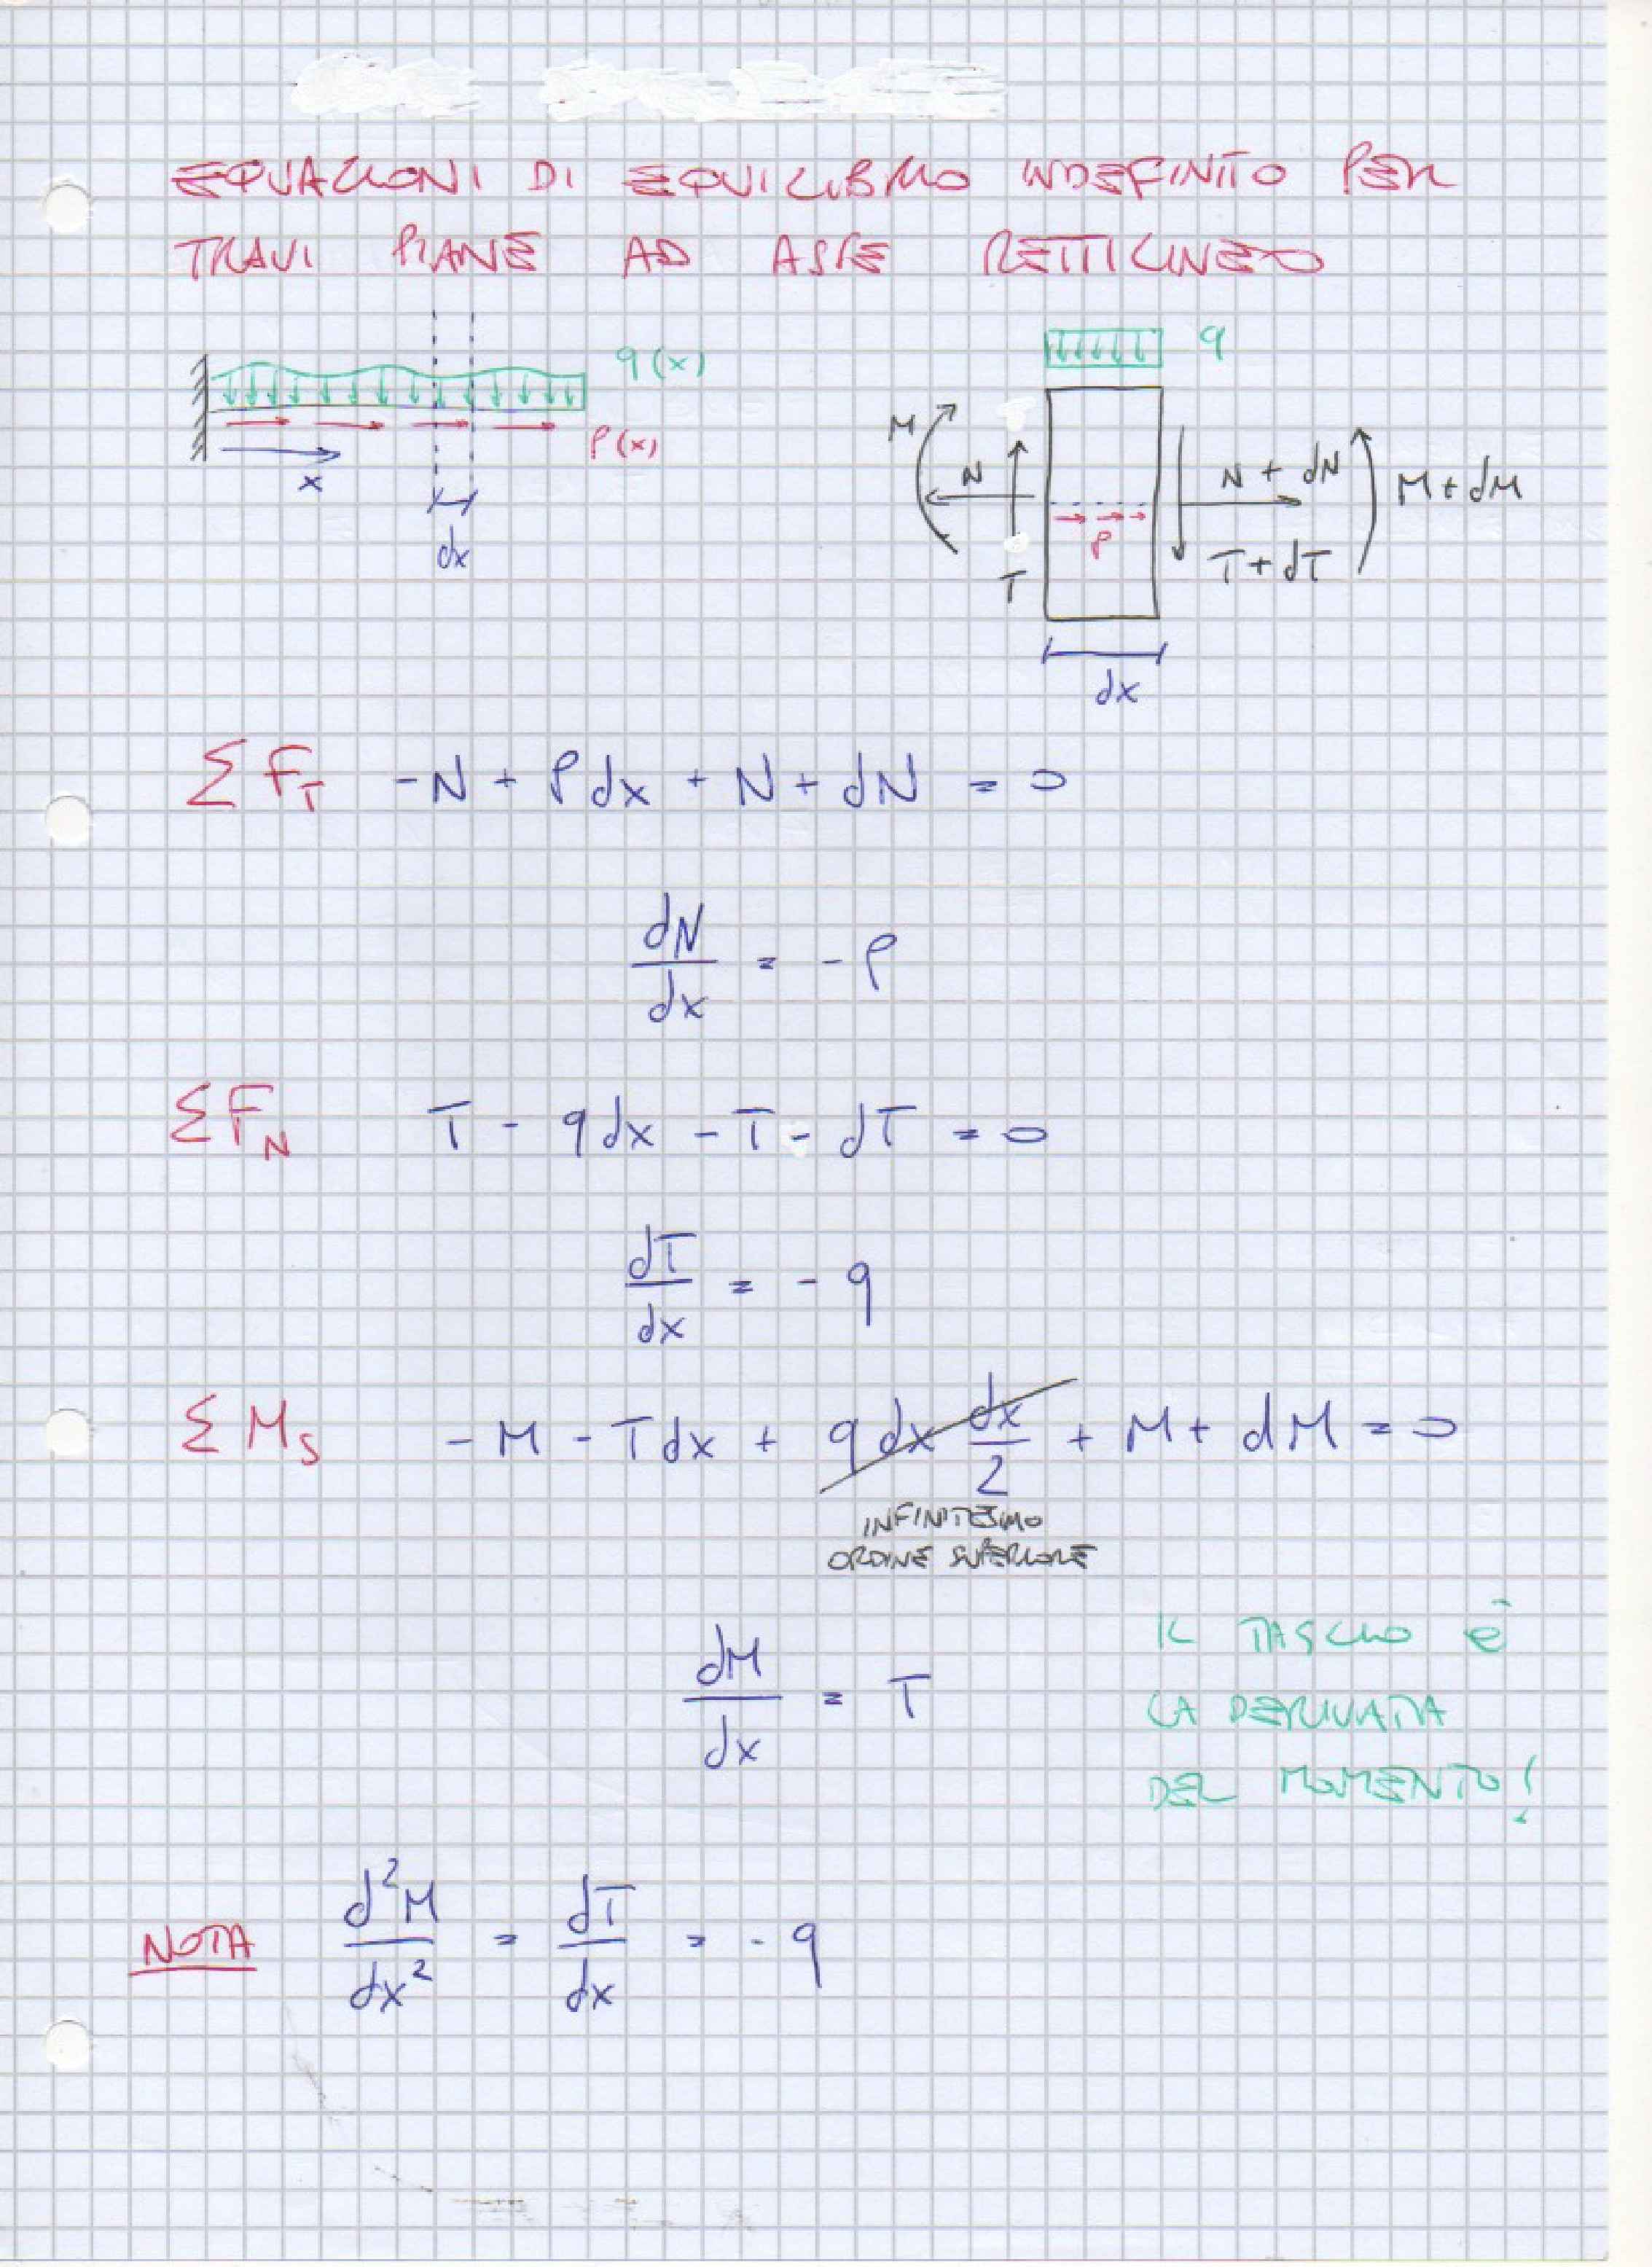 EQUAZIONI DI EQUILIBRIO INDEFINITO PER
TRAVI PIANE AD ASSE RETTILINEO
q(x)
p(x)
x
dx
q
M
N
T
p
N + dN
T + dT
M + dM
dx
ΣF_T -N + pdx + N + dN = 0
dN/dx = -p
ΣF_N T - qdx - T - dT = 0
dT/dx = -q
ΣM_S -M - Tdx + qdx dx/2 + M + dM = 0
INFINITESIMO
ORDINE SUPERIORE
dM/dx = T
IL TAGLIO È
LA DERIVATA
DEL MOMENTO!
NOTA d²M/dx² = dT/dx = -q